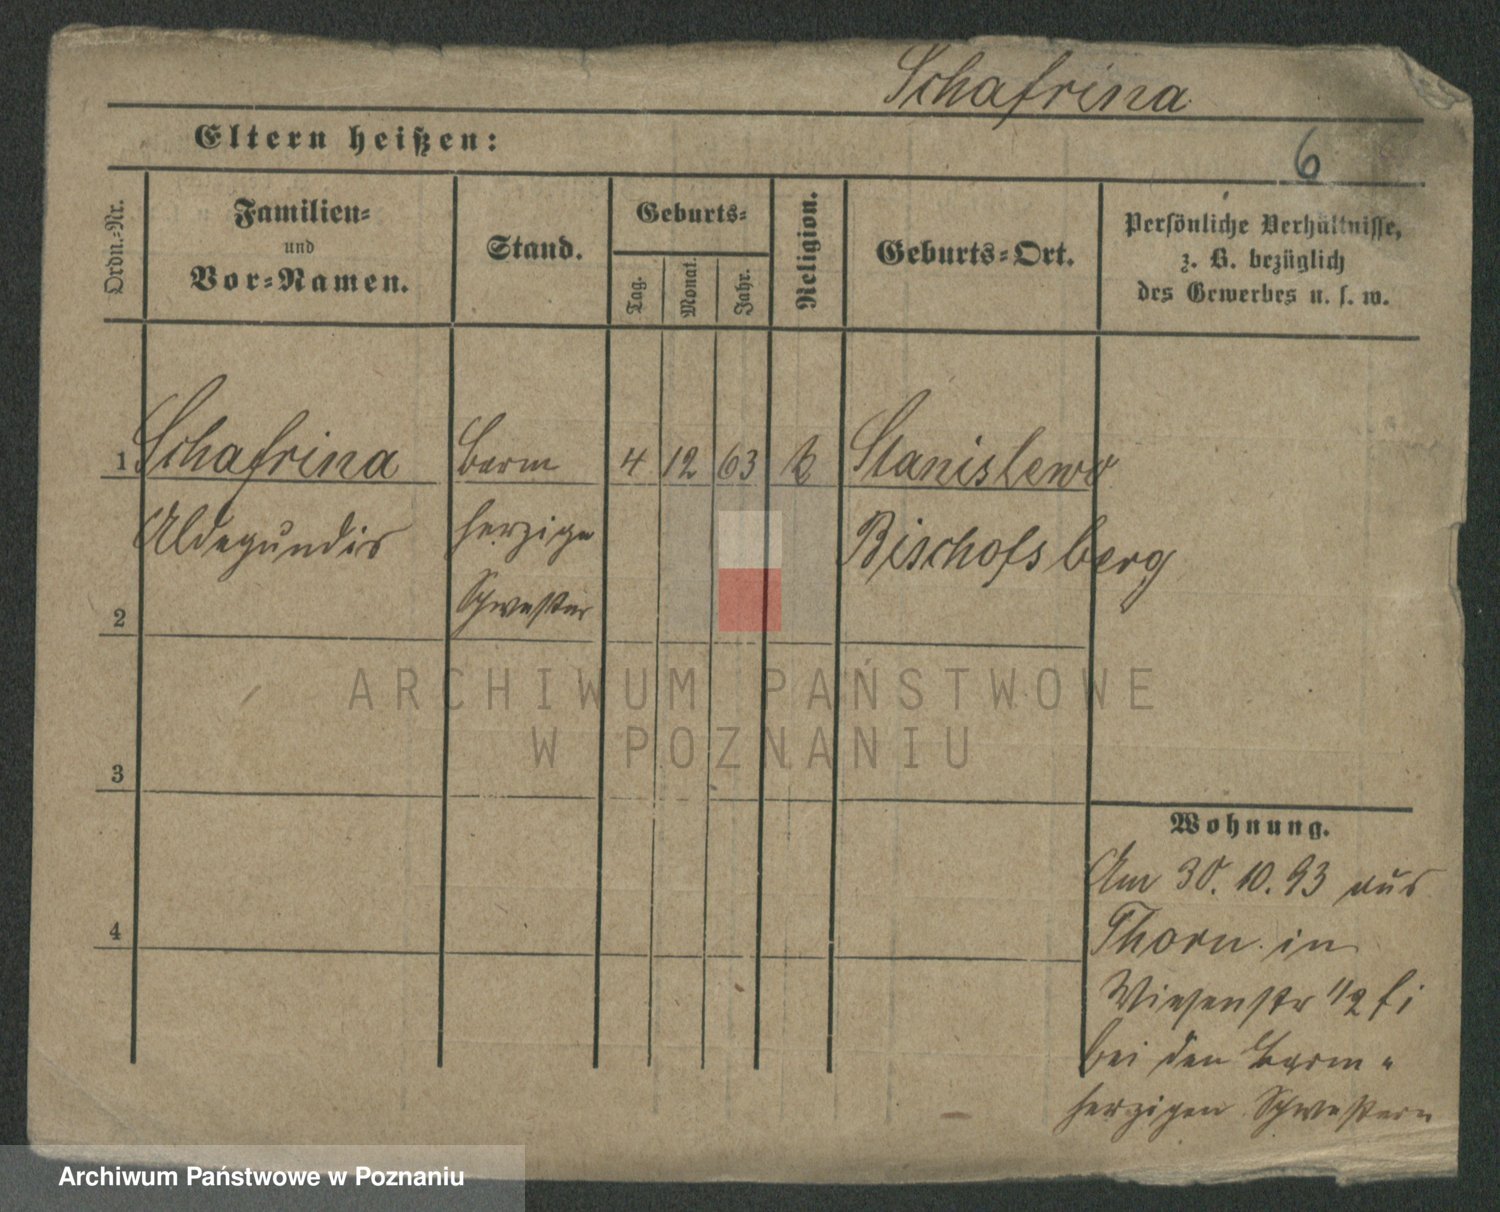 Schafrina
Eltern heißen:
6
Ordn.-Nr.
Familien-
und
Vor-Namen.
Stand.
Geburts-
Tag.
Monat.
Jahr.
Religion.
Geburts-Ort.
Persönliche Verhältnisse,
z. B. bezüglich
des Gewerbes u. s. w.
1 Schafrina barm 4 12 63 k Stanislewo
Aldegundis herzige Bischofsberg
2 Schwester
ARCHIWUM PAŃSTWOWE
W POZNANIU
3
Wohnung.
Am 30. 10. 93 aus
4 Thorn in
Wiesenstr 1/2
bei den barm-
herzigen Schwestern
Archiwum Państwowe w Poznaniu